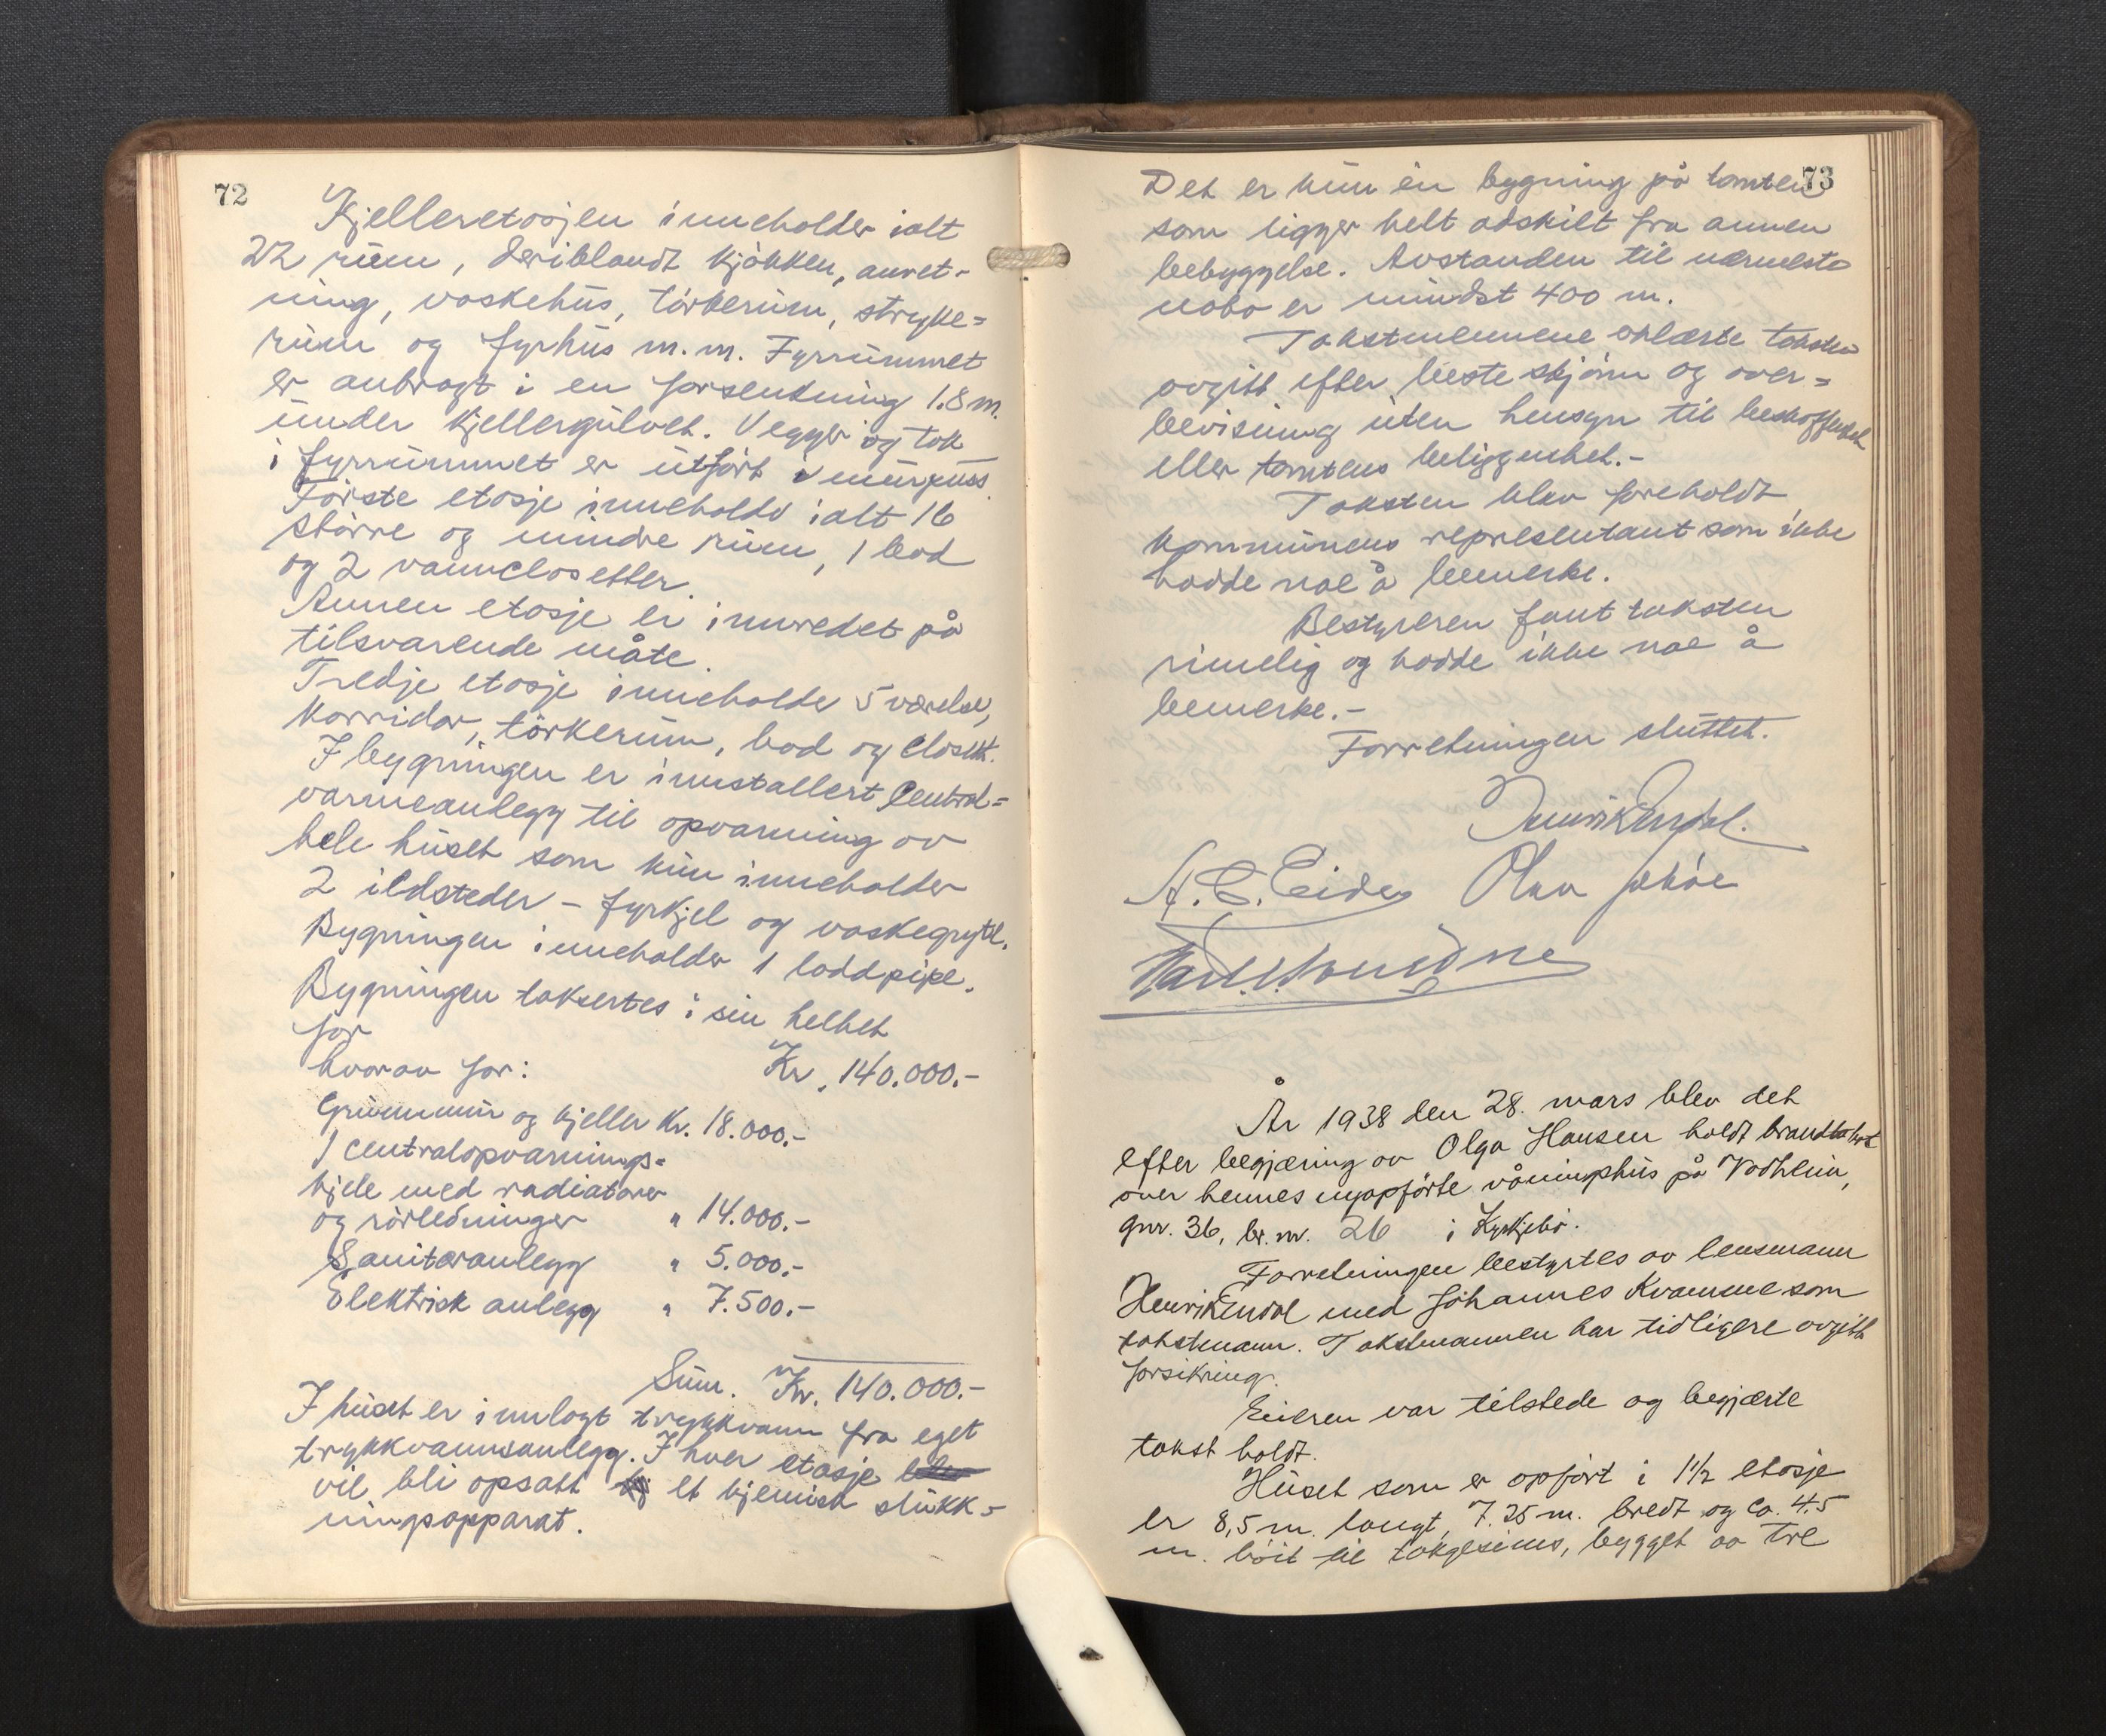 72
Kjelleretasjen inneholder ialt
22 rum, deriblandt kjøkken, anret-
ning, vaskehus, tørkerum, stryke=
rum og fyrhus m.m. Fyrrummet
er anbragt i en forsenkning 1.8 m.
under kjellergulvet. Vegger og tak
i fyrrummet er utført i murpuss.
Første etasje inneholder ialt 16
større og mindre rum, 1 bad
og 2 vannclosetter.
Annen etasje er innredet på
tilsvarende måte.
Tredje etasje inneholder 5 værelser,
korridor, tørkerum, bad og closett.
I bygningen er innstallert Central=
varmeanlegg til opvarming av
hele huset som kun inneholder
2 ildsteder – fyrkjel og vaskegryte.
Bygningen inneholder 1 loddpipe.
Bygningen takseres i sin helhet
for
Kr. 140.000.-
hvorav for:
Grunnmur og kjeller Kr. 18.000.-
1 centralopvarmings=
kjele med radiatorer
og rørledninger " 14.000.-
Sanitæranlegg " 5.000.-
Elektrisk anlegg " 7.500.-
Sum. Kr. 140.000.-
I huset er innlagt trykkvann fra eget
trykkvannsanlegg. I hver etasje
vil bli opsatt et kjemisk slukk-
ningsapparat.
73
Det er kun én bygning på tomten
som ligger helt adskilt fra annen
bebyggelse. Avstanden til nærmeste
nabo er mindst 400 m.
Takstmennene erklærte taksten
avgitt efter beste skjønn og over=
bevisning uten hensyn til beskaffenhet
eller tomtens beliggenhet.-
Taksten blev foreholdt
kommunens representant som ikke
hadde noe å bemerke.
Bestyreren fant taksten
rimelig og hadde ikke noe å
bemerke.-
Forretningen sluttet.
Henrik Endal.
A. C. Eide Olav
År 1938 den 28. mars blev det
efter begjæring av Olga Hansen holdt brandtakst
over hennes nyopførte våningshus på Vadheim,
gnr. 36, br.nr. 26 i Kyrkjebø.
Forretningen bestyrtes av lensmann
Henrik Endal med Johannes Kvamme som
takstmann. Takstmannen har tidligere avgitt
forsikring.
Eieren var tilstede og begjærte
takst holdt.
Huset som er opført i 1 1/2 etasje
er 8,5 m. langt, 7.35 m. bredt og ca. 4.5
m. høit til takgesims, bygget av tre